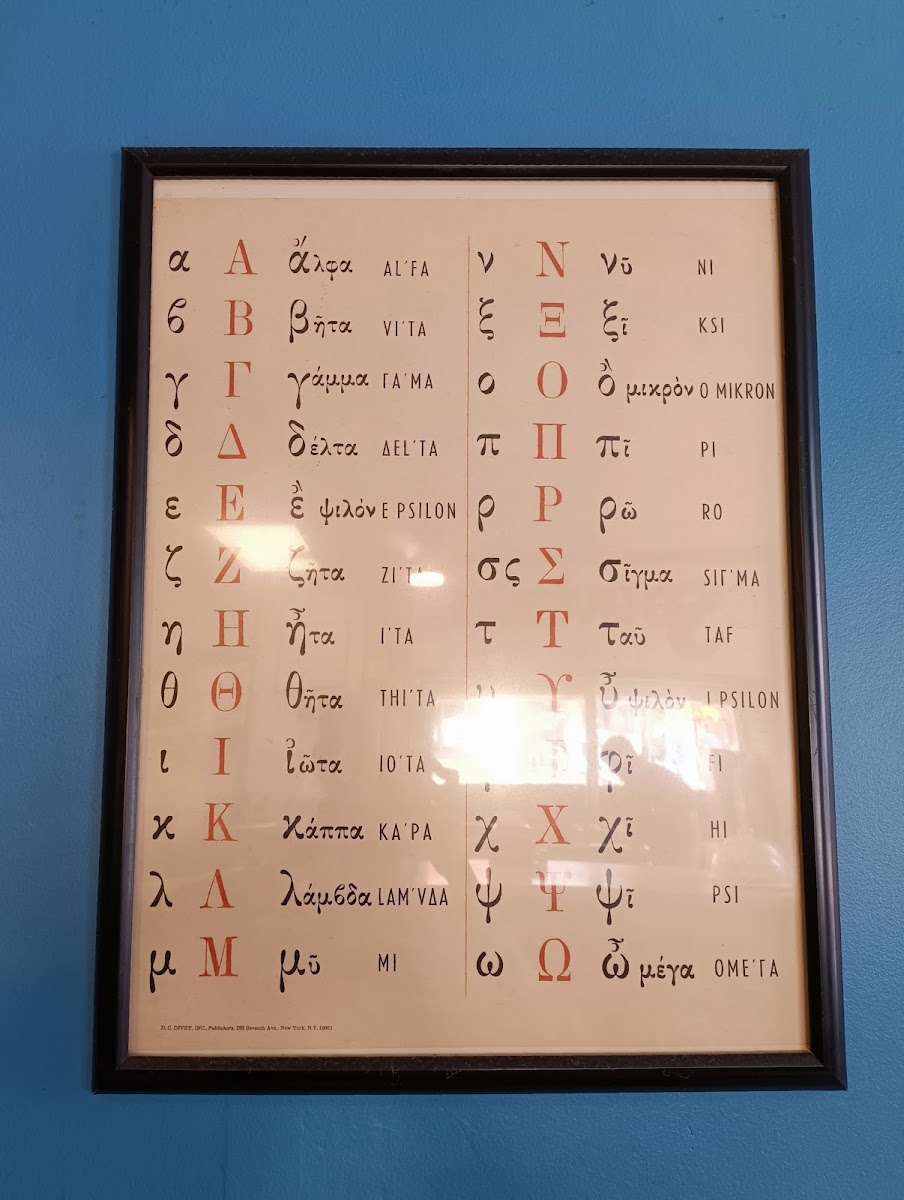 α Α ἄλφα AL'FA
ϐ Β βῆτα VI'TA
γ Γ γάμμα ΓA'MA
δ Δ δέλτα ΔEL'TA
ε Ε ἒ ψιλόν E PSILON
ζ Ζ ζῆτα ZI'TA
η Η ἦτα I'TA
θ Θ θῆτα THI'TA
ι Ι ἰῶτα IO'TA
κ Κ κάππα KA'PA
λ Λ λάμϐδα LAM'VΔA
μ Μ μῦ MI
ν Ν νῦ NI
ξ Ξ ξῖ KSI
ο Ο ὂ μικρὸν O MIKRON
π Π πῖ PI
ρ Ρ ρῶ RO
σ ς Σ σῖγμα SIΓ'MA
τ Τ ταῦ TAF
υ Υ ὖ ψιλὸν I PSILON
φῖ FI
χ Χ χῖ HI
ψ Ψ ψῖ PSI
ω Ω ὦ μέγα OME'ΓA
D. C. DIVRY, INC., Publishers, 293 Seventh Ave., New York, N.Y. 10001